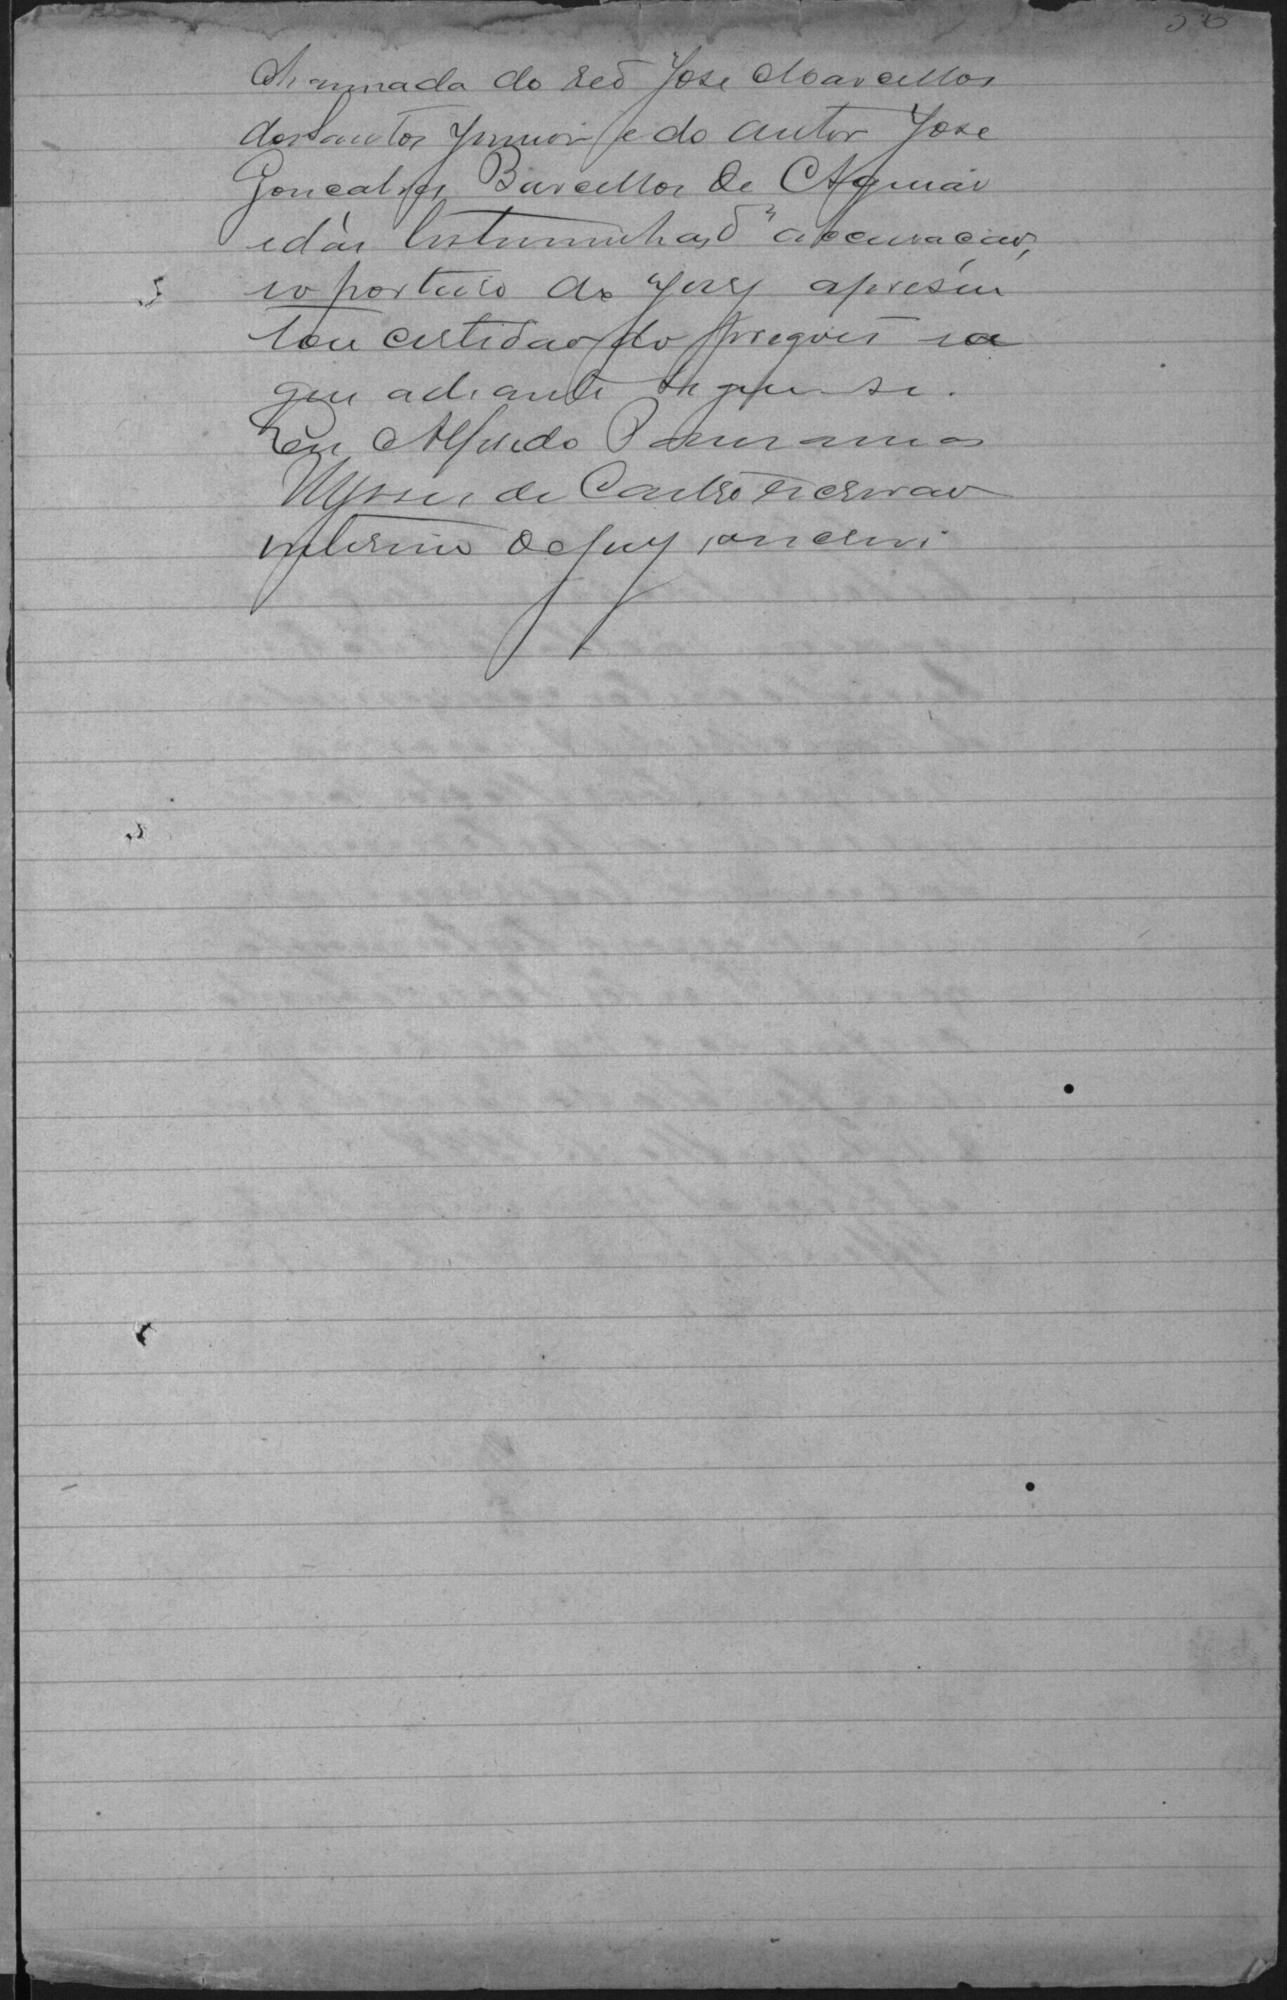 chamada do reo Jose Marcellos
dos Santos Junior e do autor Jose
Goncalves Barcellos de Aguiar
e dás testimunhas d'accusacao,
eo porteiro do Jury apresen
tou certidao do pregoes
que adiante segue-se.
Eu Alfredo
Ulysses de Castro escrivao
interino do Jury, o escrevi